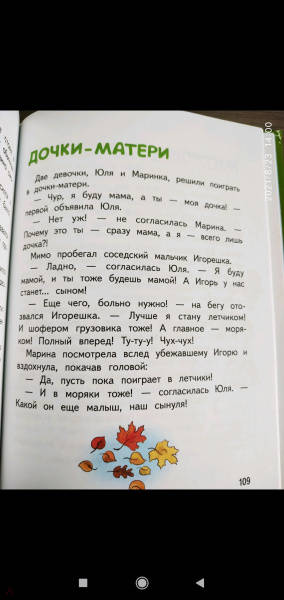 2021/8/23 14:00
ДОЧКИ-МАТЕРИ
Две девочки, Юля и Маринка, решили поиграть
в дочки-матери.
— Чур, я буду мама, а ты — моя дочка! —
первой объявила Юля.
— Нет уж! — не согласилась Марина. —
Почему это ты — сразу мама, а я — всего лишь
дочка?!
Мимо пробегал соседский мальчик Игорешка.
— Ладно, — согласилась Юля. — Я буду
мамой, и ты тоже будешь мамой! А Игорь у нас
станет... сыном!
— Еще чего, больно нужно! — на бегу ото-
звался Игорешка. — Лучше я стану летчиком!
И шофером грузовика тоже! А главное — моря-
ком! Полный вперед! Ту-ту-у! Чух-чух!
Марина посмотрела вслед убежавшему Игорю и
вздохнула, покачав головой:
— Да, пусть пока поиграет в летчики!
— И в моряки тоже! — согласилась Юля. —
Какой он еще малыш, наш сынуля!
109